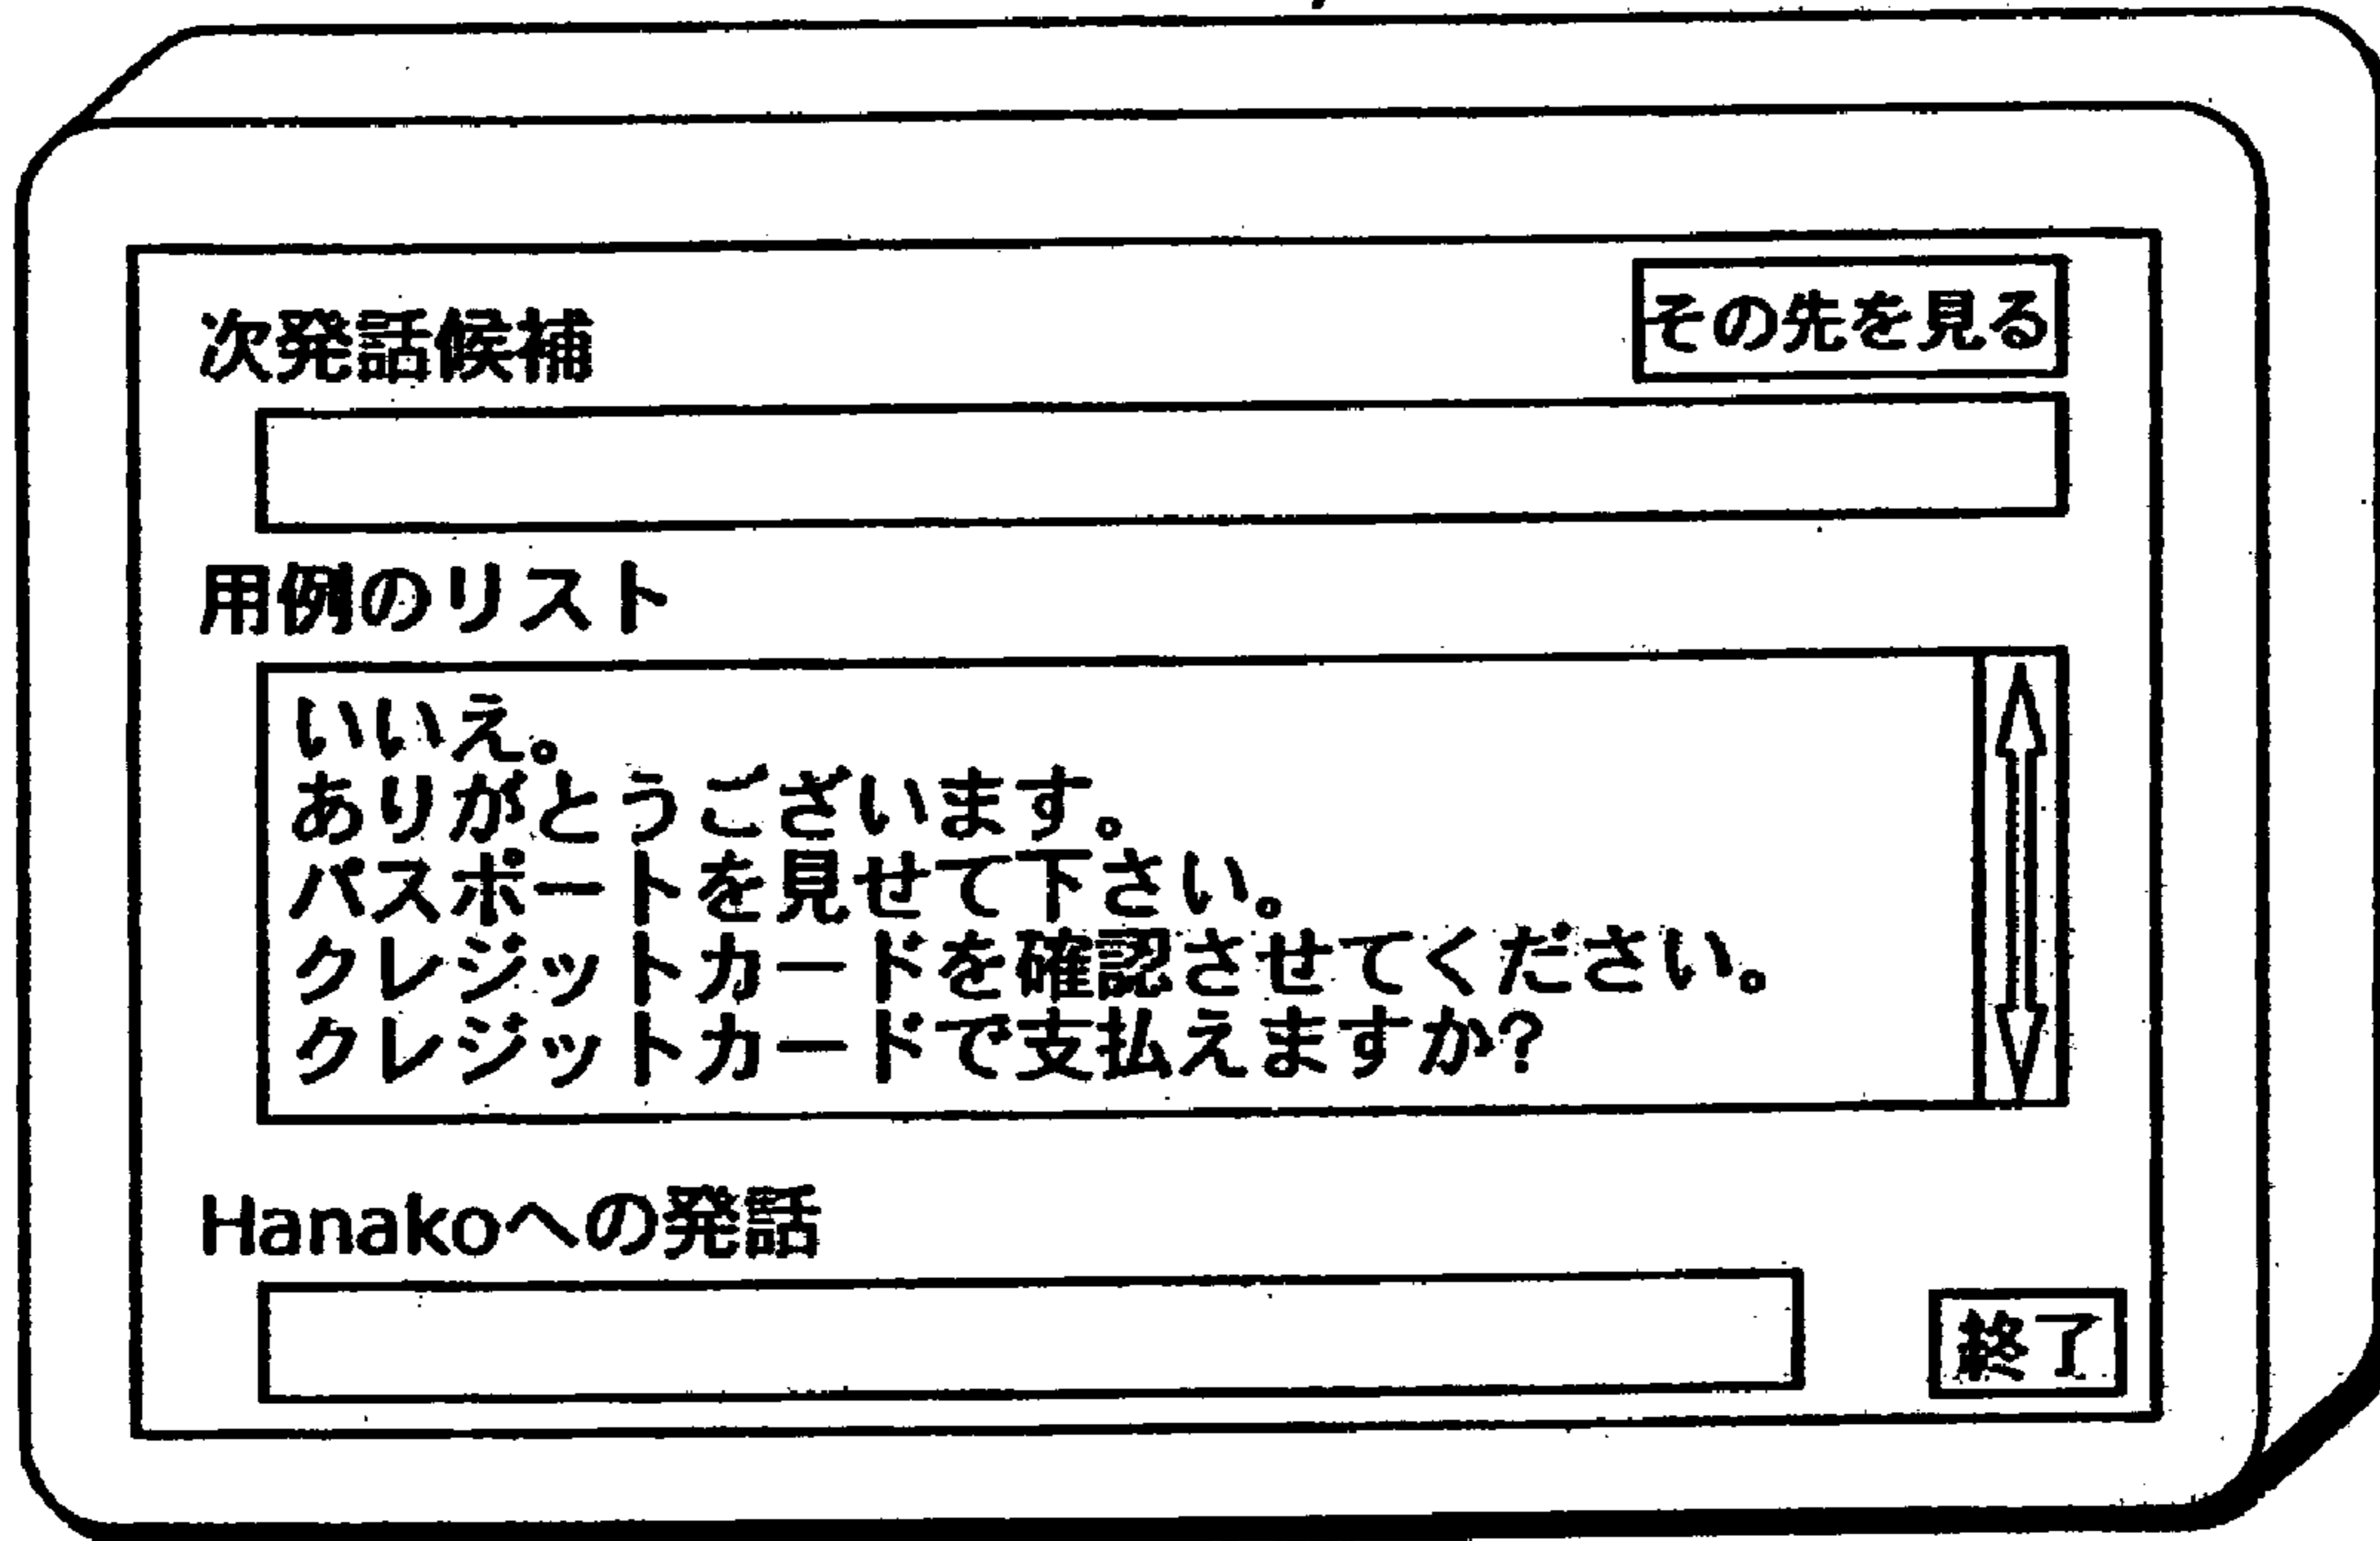 次発話候補
その先を見る
用例のリスト
いいえ。
ありがとうございます。
パスポートを見せて下さい。
クレジットカードを確認させてください。
クレジットカードで支払えますか?
Hanakoへの発話
終了